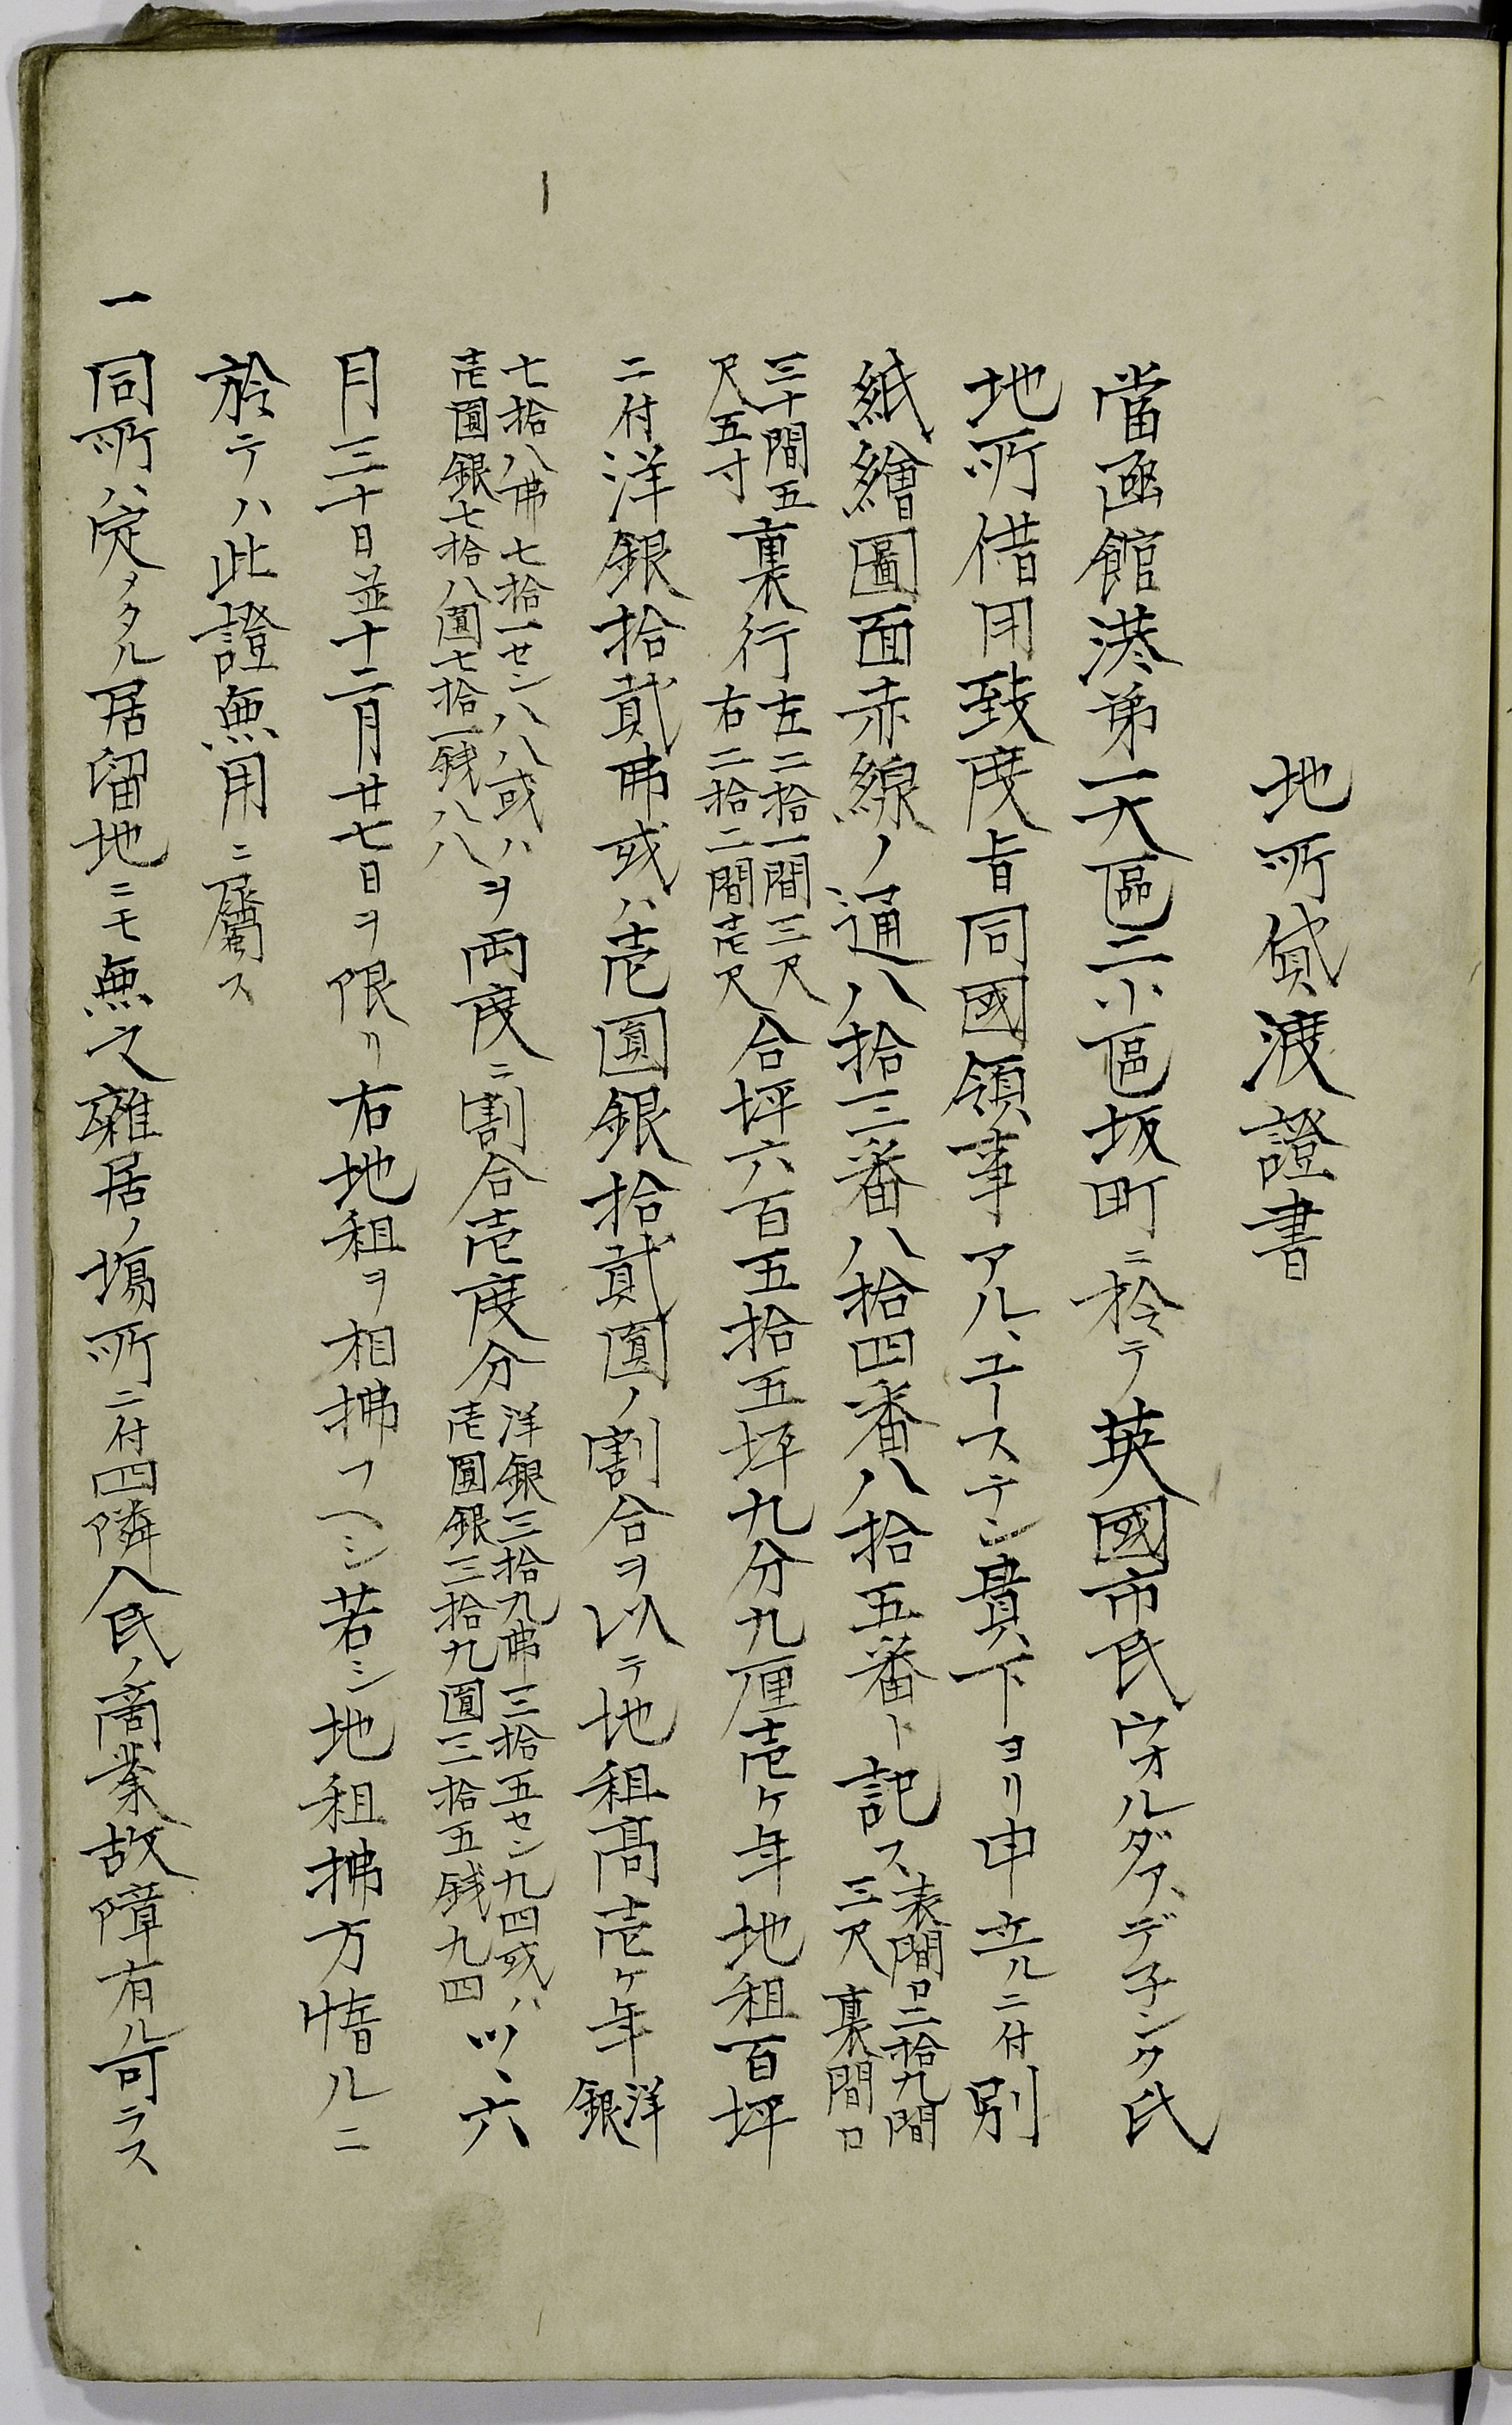 地所貸渡證書
當函館港第一大區二小區坂町ニ於テ英國市民ウオルダア、デ子ング氏
地所借用致度旨同國領事アル、ユースデン貴下ヨリ申立ルニ付別
紙繪圖面赤線ノ通八拾三番八拾四番八拾五番ト記ス表間口二拾九間三尺裏間口
三十間五尺五寸裏行左二拾一間三尺右二拾二間壱尺合坪六百五拾五坪九分九厘壱ケ年地租百坪
ニ付洋銀拾貳弗或ハ壱圓銀拾貳圓ノ割合ヲ以テ地租高壱ケ年洋銀
七拾八弗七拾一セン八八或ハ壱圓銀七拾八圓七拾一銭八八ヲ両度ニ割合壱度分洋銀三拾九弗三拾五セン九四或ハ壱圓銀三拾九圓三拾五銭九四ツ、六
月三十日並十二月廿七日ヲ限リ右地租ヲ相拂フヘシ若シ地租拂方惰ルニ
於テハ此證無用ニ屬ス
一同所ハ定メタル居留地ニモ無之雜居ノ塲所ニ付四隣人民ノ商業故障有ル可ラス